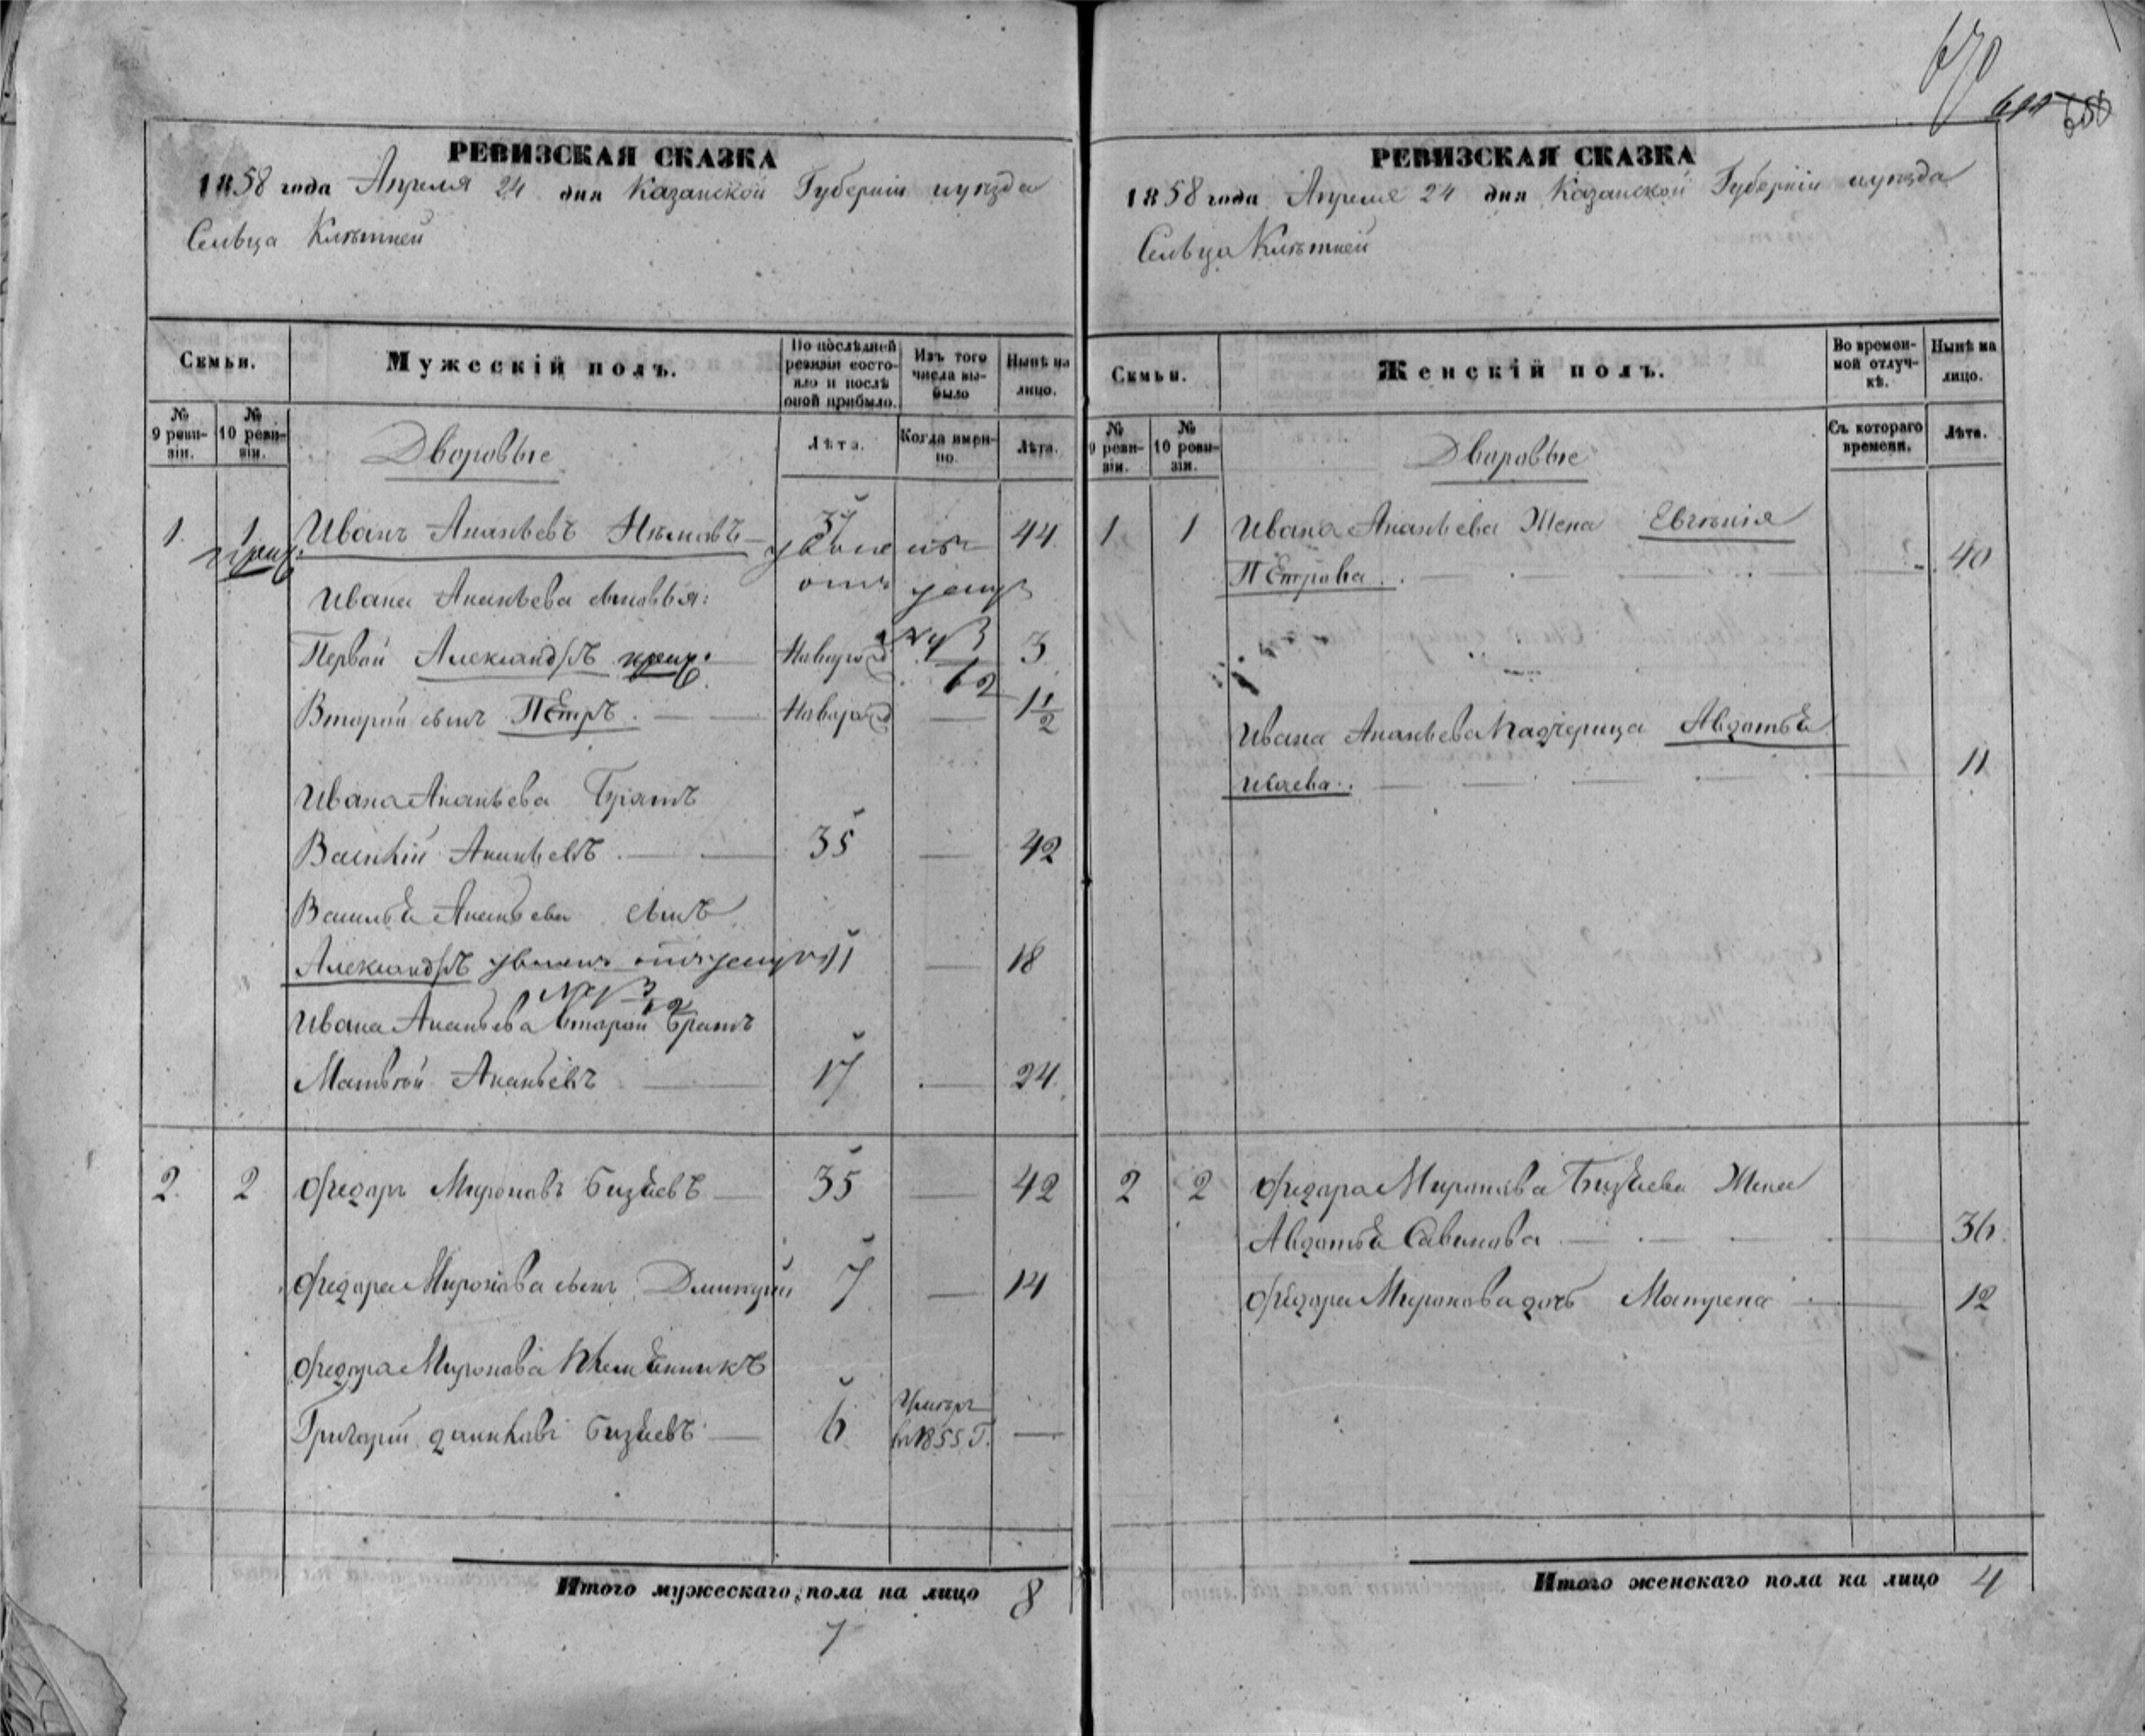 670
680
РЕВИЗСКАЯ СКАЗКА
1858 года Апреля 24 дня Казанской Губерніи и уѣзда
Сельца Клѣтней
Семьи.
Мужескій полъ.
По послѣдней ревизіи состояло и послѣ оной прибыло.
Изъ того числа выбыло
Нынѣ на лицо.
№ 9 ревизіи.
№ 10 ревизіи.
Дворовые
Лѣта.
Когда именно.
Лѣта.
1. 1 Иванъ Ананьевъ 37 44
Ивана Ананьева сыновья:
Первой Александръ Новорож 3
Второй сынъ Пётръ. Новорож 1 1/2
Ивана Ананьева Братъ
Василій Ананьевъ 35 42
Василья Ананьева сынъ
Александръ 11 18
Ивана Ананьева второй Братъ
Матвей Ананьевъ 17 24
2. 2 Федоръ Мироновъ Бизяевъ 35 42
Федора Миронова сынъ Дмитрий 7 14
Федора Миронова Племянникъ
Григорий Бизяевъ 6 Умеръ в 1855 г.
Итого мужескаго пола на лицо 8
7
РЕВИЗСКАЯ СКАЗКА
1858 года Апреля 24 дня Казанской Губерніи и уѣзда
Сельца Клѣтней
Семьи.
Женскій полъ.
Во временной отлучкѣ.
Нынѣ на лицо.
№ 9 ревизіи.
№ 10 ревизіи.
Дворовые
Съ котораго времени.
Лѣта.
1 1 Ивана Ананьева Жена Евгѣнія
Пётрова. 40
Ивана Ананьева Падчерица Авдотья
11
2 2 Федора Миронова Бизяева Жена
Авдотья Савинова 36
Федора Миронова дочь Матрена 12
Итого женскаго пола на лицо 4